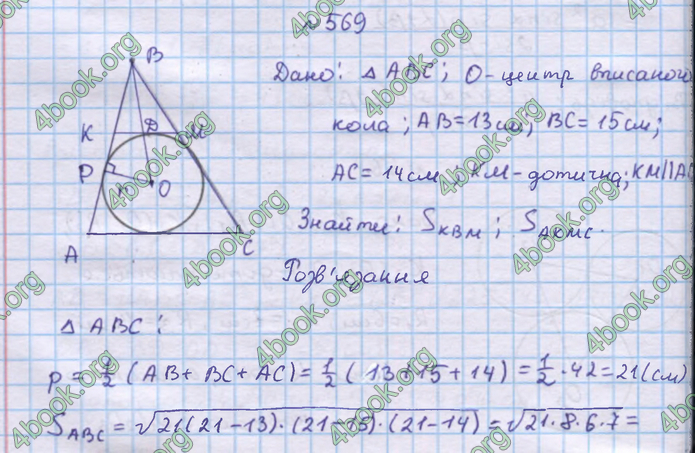 №569
B
K D M
P
r O
A C
Дано: △ABC; O-центр вписаного
кола; AB=13см; BC=15см;
AC=14см; KM-дотична; KM||AC
Знайти: S_KBM; S_AKMC.
Розв'язання
△ABC:
p = 1/2 (AB+BC+AC) = 1/2 (13+15+14) = 1/2 · 42 = 21(см)
S_ABC = √21(21-13)·(21-15)·(21-14) = √21·8·6·7 =
4book.org